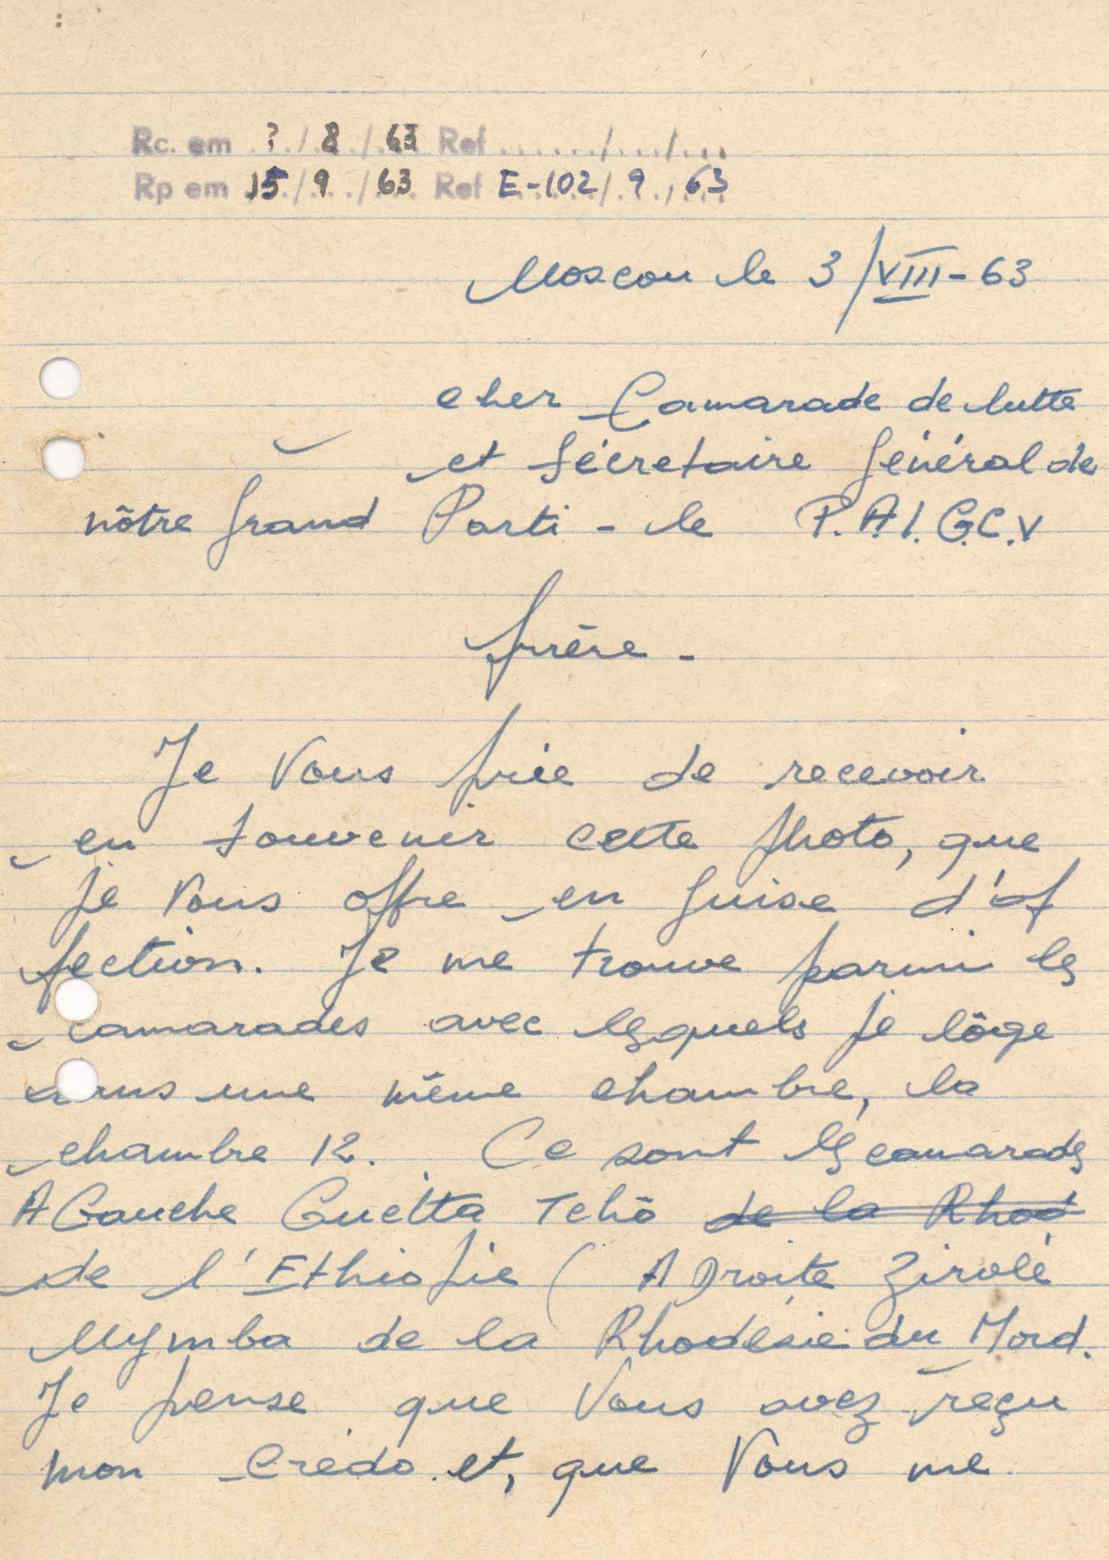 Rc. em ? / 8 / 63 Ref ....../..../....
Rp em 15 / 9 / 63 Ref E-102 / 9 / 63
Moscou le 3/VIII-63
cher Camarade de lutte
et Sécretaire Général de
nôtre Grand Parti - le P.A.I.G.C.V
frère -
Je Vous prie de recevoir
en souvenir cette photo, que
je Vous offre en guise d'af
fection. Je me trouve parmi les
camarades avec lesquels je lôge
dans une même chambre, la
chambre 12. Ce sont les camarades
A Gauche Guetta Tchô de la Rhod
de l'Ethiopie ( A Droite Zirolé
Mymba de la Rhodésie du Nord.
Je pense que Vous avez reçu
mon Crédo et, que Vous me